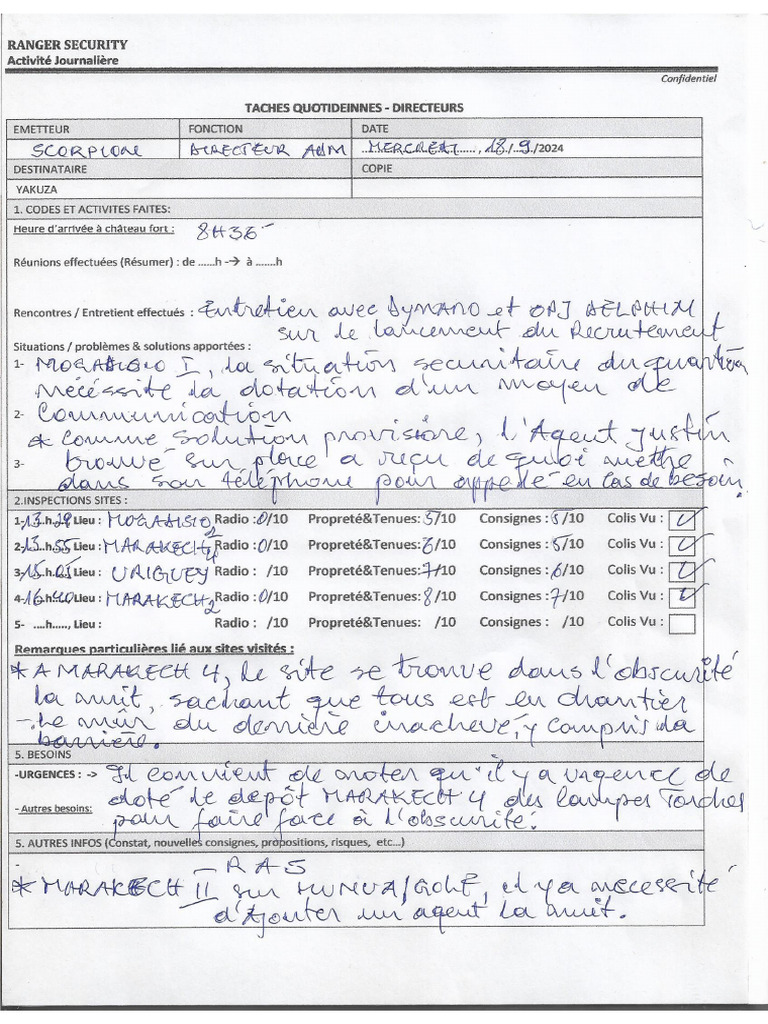 RANGER SECURITY
Activité Journalière
Confidentiel
TACHES QUOTIDEINNES - DIRECTEURS
EMETTEUR FONCTION DATE
SCORPION DIRECTEUR ADM ..MERCREDI....., 18./..9./2024
DESTINATAIRE COPIE
YAKUZA
1. CODES ET ACTIVITES FAITES:
Heure d'arrivée à château fort : 8H36'
Réunions effectuées (Résumer) : de ......h -→ à .......h
Rencontres / Entretient effectués : Entretien avec DYNAMO et OPJ DELPHIN
sur le lancement du Recrutement
Situations / problèmes & solutions apportées :
1- MOGADISIO I, la situation securitaire du quartier
nécéssite la dotation d'un moyen de
2- Communication
* comme solution provisoire, l'Agent Justin
3- trouvé sur place a reçu de quoi mettre
dans son téléphone pour appelé en cas de besoin.
2.INSPECTIONS SITES :
1-13.h.29 Lieu : MOGADISIO 2 Radio : 0/10 Propreté&Tenues: 5/10 Consignes : 5/10 Colis Vu :
2-13.h.55 Lieu : MARAKECH 4 Radio : 0/10 Propreté&Tenues: 6/10 Consignes : 5/10 Colis Vu :
3-15.h.03 Lieu : URIGUEY Radio : /10 Propreté&Tenues: 7/10 Consignes : 6/10 Colis Vu :
4-16.h.40 Lieu : MARAKECH 2 Radio : 0/10 Propreté&Tenues: 8/10 Consignes : 7/10 Colis Vu :
5- ....h...., Lieu : Radio : /10 Propreté&Tenues: /10 Consignes : /10 Colis Vu :
Remarques particulières lié aux sites visités :
* A MARAKECH 4, le site se trouve dans l'obscurité
la nuit, sachant que tous est en chantier
- Le mûr du derrière inachevé, y compris la
barrière.
5. BESOINS
-URGENCES : -> Il convient de noter qu'il y a urgence de
- Autres besoins: doté le depôt MARAKECH 4 des lampes Torches
pour faire face à l'obscurité.
5. AUTRES INFOS (Constat, nouvelles consignes, propositions, risques, etc...)
- - RAS
* MARAKECH II sur MUNUA/GOLF, il y a necessité
d'Ajouter un agent la nuit.